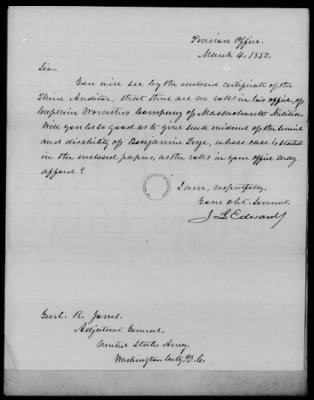 Pension Office.
March 4, 1850.
Sir.
You will see by the enclosed certificate of the
Third Auditor, that there are no rolls in his office, of
Captain Worcester's Company of Massachusetts Militia.
Will you be so good as to give such evidence of the service
and disability of Benjamin Frye, whose case is stated
in the enclosed papers, as the rolls in your office may
afford?
I am, respectfully,
Your Obt. Servant,
J. L. Edwards
Genl. R. Jones.
Adjutant General,
United States Army.
Washington City, D.C.